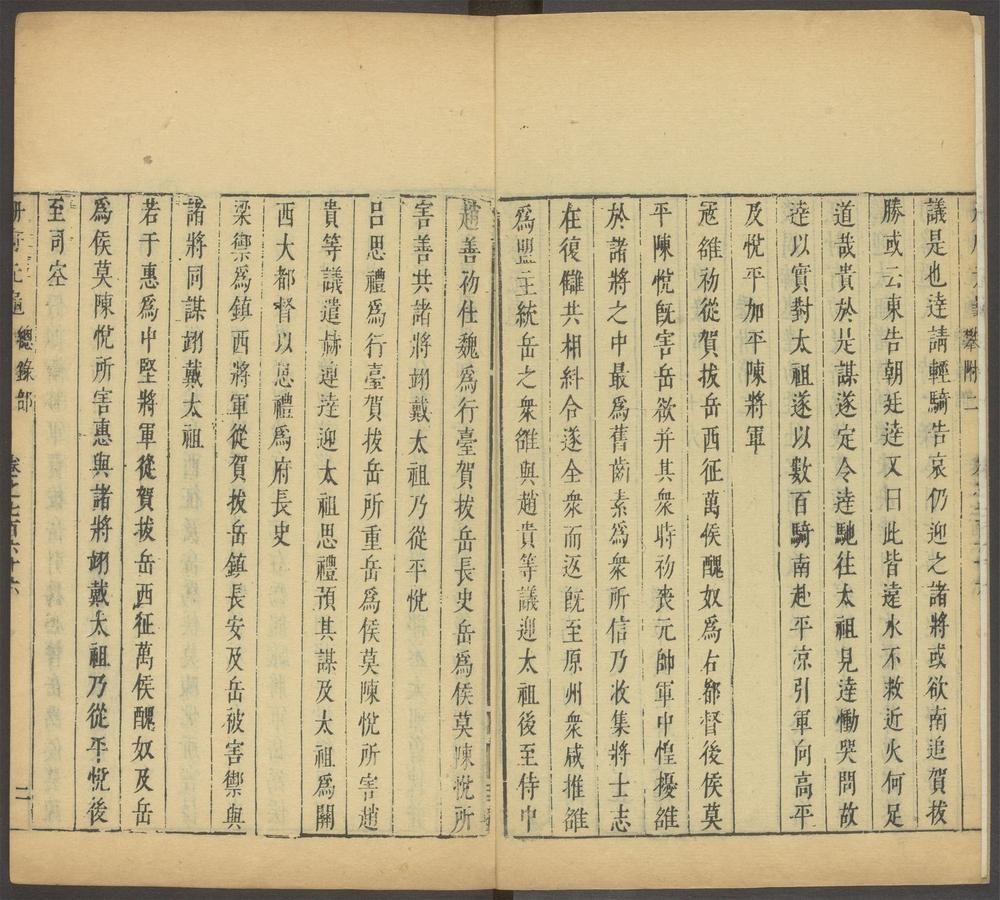 攀附二
議是也逹請輕騎告哀仍迎之諸將或欲南追賀拔
勝或云東告朝廷逹又曰此皆遠水不救近火何足
道哉貴於是謀遂定令逹馳往太祖見逹慟哭問故
逹以實對太祖遂以數百騎南赴平凉引軍向高平
及悅平加平陳將軍
冦雒初從賀拔岳西征萬俟醜奴爲右都督後侯莫
平陳悅旣害岳欲并其衆時初喪元帥軍中惶擾雒
於諸將之中最爲舊齒素爲衆所信乃收集將士志
在復讎共相糾合遂全衆而返旣至原州衆咸推雒
爲盟主統岳之衆雒與趙貴等議迎太祖後至侍中
趙善初仕魏爲行臺賀拔岳長史岳爲侯莫陳悅所
害善共諸將翊戴太祖乃從平悅
呂思禮爲行臺賀拔岳所重岳爲侯莫陳悅所害趙
貴等議遣赫連逹迎太祖思禮預其謀及太祖爲關
西大都督以思禮爲府長史
梁禦爲鎮西將軍從賀拔岳鎮長安及岳被害禦與
諸將同謀翊戴太祖
若于惠爲中堅將軍從賀拔岳西征萬俟醜奴及岳
爲侯莫陳悅所害惠與諸將翊戴太祖乃從平悅後
至司空
冊府元龜 總錄部 卷之七百六十六 二